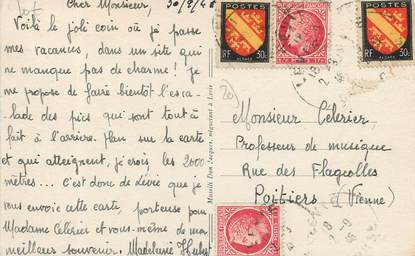 Cher Monsieur, 30/8/48
Voilà le joli coin où je passe
mes vacances, dans un site qui
ne manque pas de charme ! Je
me propose de faire bientôt l'esca-
lade des pics qui sont tout à
fait à l'arrière. Plan sur la carte
et qui atteignent, je crois, les 2000
mètres... C'est donc de Lévie que je
vous envoie cette carte, porteuse pour
Madame Célérier et vous-même de mon
meilleur souvenir. Madeleine
POSTES
RF ALSACE 30c
POSTES
RF ALSACE 30c
20
Monsieur Célérier,
Professeur de musique
Rue des Flageolles
Poitiers
(Vienne)